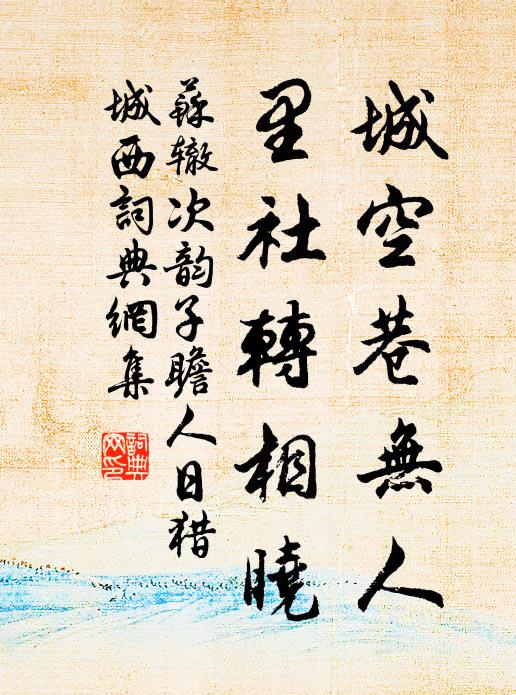 城空巷無人
里社轉相曉
蘇辙次韵子瞻人日猎
城西詞典網集
詞典网印